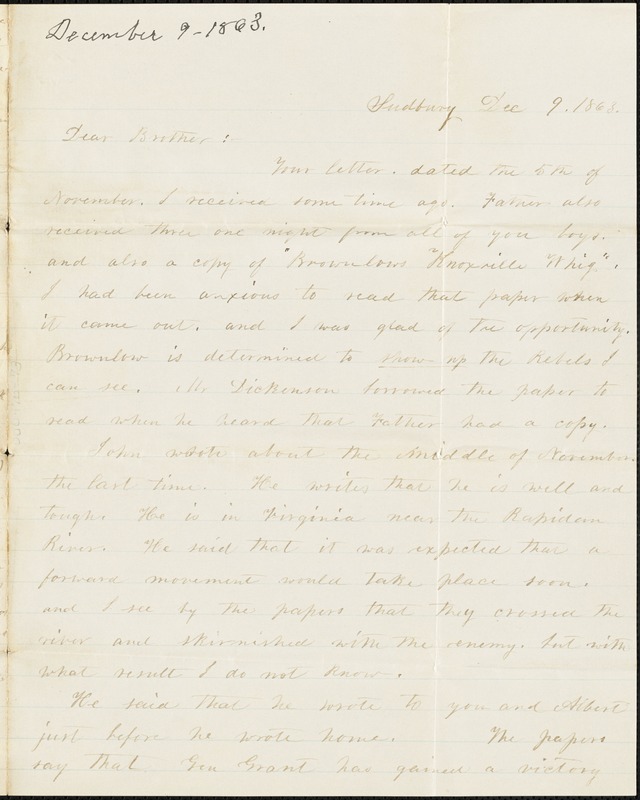 December 9-1863.
Sudbury Dec 9. 1863.
Dear Brother:
Your letter. dated the 5th of
November. I received some time ago. Father also
received three one night from all of you boys.
and also a copy of "Brownlows Knoxville Whig".
I had been anxious to read that paper when
it came out. and I was glad of the opportunity.
Brownlow is determined to show up the Rebels I
can see. Mr Dickenson borrowed the paper to
read when he heard that Father had a copy.
John wrote about the Middle of November
the last time. He writes that he is well and
tough. He is in Virginia near the Rapidan
River. He said that it was expected that a
forward movement would take place soon.
and I see by the papers that they crossed the
river and skirmished with the enemy. but with
what result I do not know.
He said that he wrote to you and Albert
just before he wrote home. The papers
say that Gen Grant has gained a victory